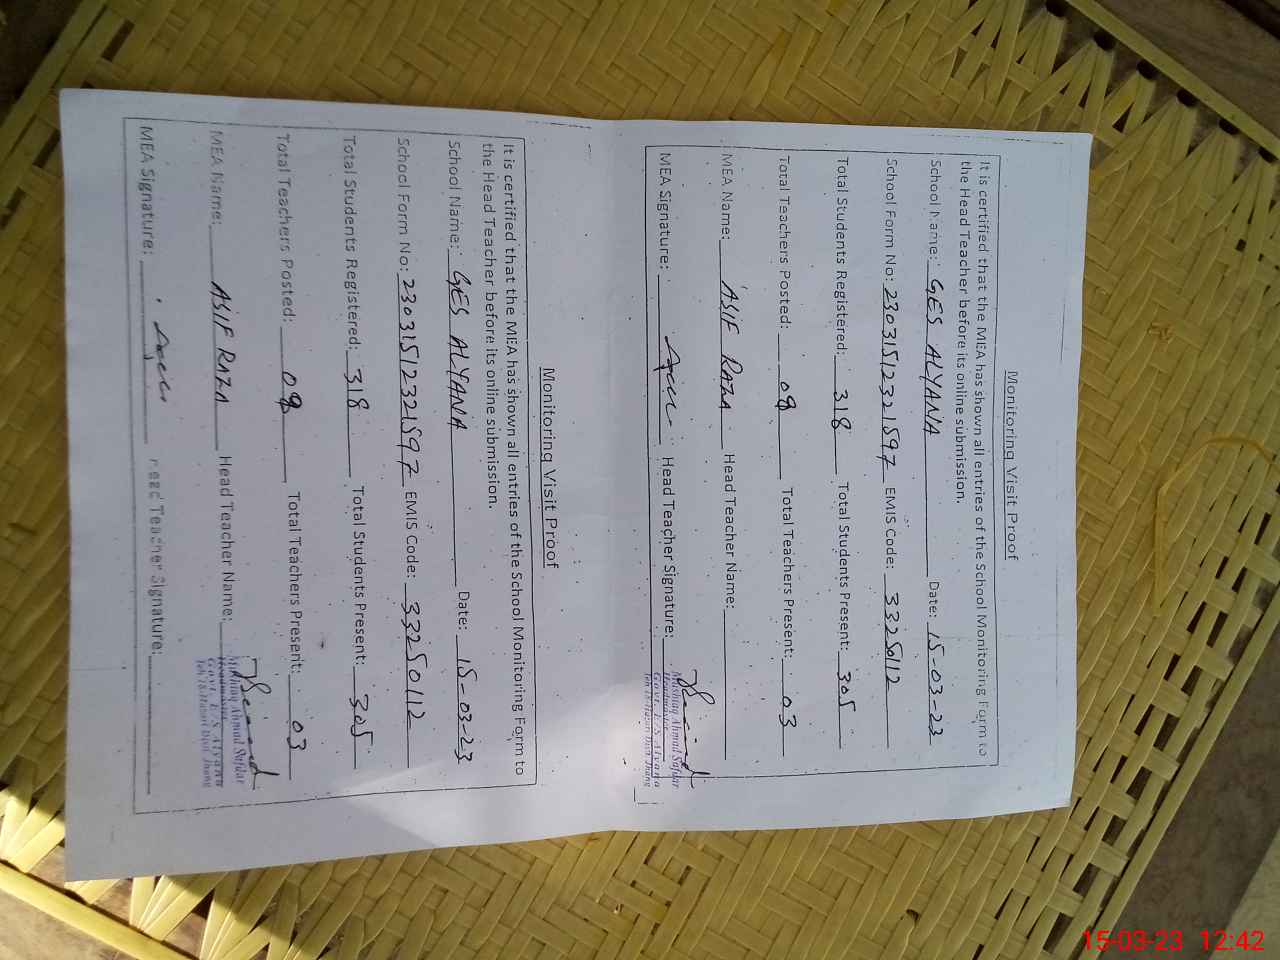 Monitoring Visit Proof
It is certified that the MEA has shown all entries of the School Monitoring Form to
the Head Teacher before its online submission.
School Name: GES ALYANA Date: 15-03-23
School Form No: 23031512321597 EMIS Code: 33250112
Total Students Registered: 318 Total Students Present: 305
Total Teachers Posted: 08 Total Teachers Present: 03
MEA Name: ASIF RAZA Head Teacher Name:
MEA Signature: Head Teacher Signature:
Mushtaq Ahmad Safdar
Headmaster
Govt. E/S Alyana
Monitoring Visit Proof
It is certified that the MEA has shown all entries of the School Monitoring Form to
the Head Teacher before its online submission.
School Name: GES ALYANA Date: 15-03-23
School Form No: 23031512321597 EMIS Code: 33250112
Total Students Registered: 318 Total Students Present: 305
Total Teachers Posted: 08 Total Teachers Present: 03
MEA Name: ASIF RAZA Head Teacher Name:
Mushtaq Ahmad Safdar
Headmaster
Govt. E/S Alyana
MEA Signature: Head Teacher Signature:
15-03-23 12:42